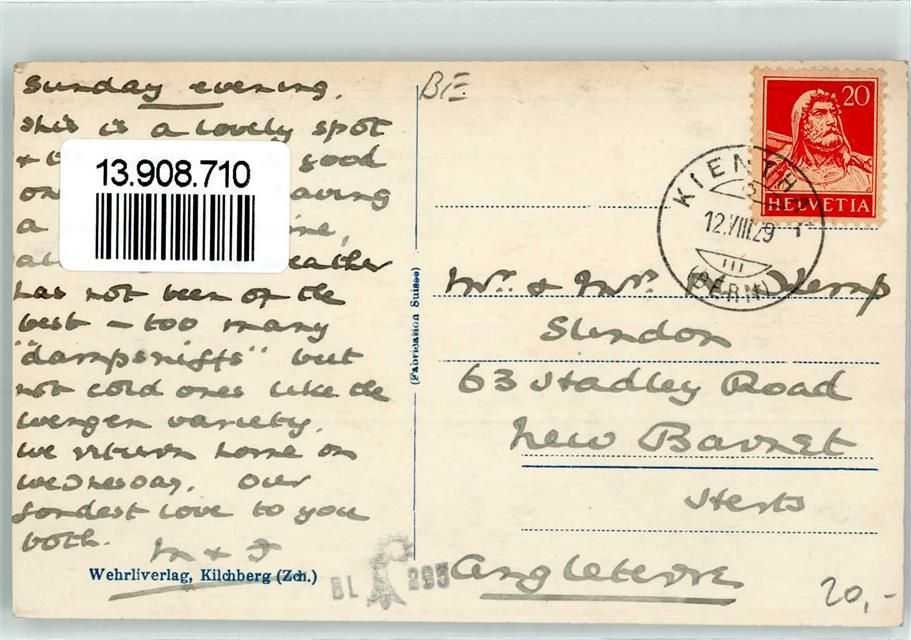 Sunday evening.
This is a lovely spot
+ good
on having
a
weather
has not been of the
best – too many
"dampsniffs" but
not cold ones like the
Wengen variety.
We return home on
Wednesday. Our
fondest love to you
both.
13.908.710
Wehrliverlag, Kilchberg (Zch.)
(Fabrication Suisse)
BE
20
HELVETIA
KIENTHAL
12.VIII.29
(BERN)
Mr. & Mrs. Skemp
63 Stadley Road
New Barnet
Herts
Angleterre
BL 295
20,-